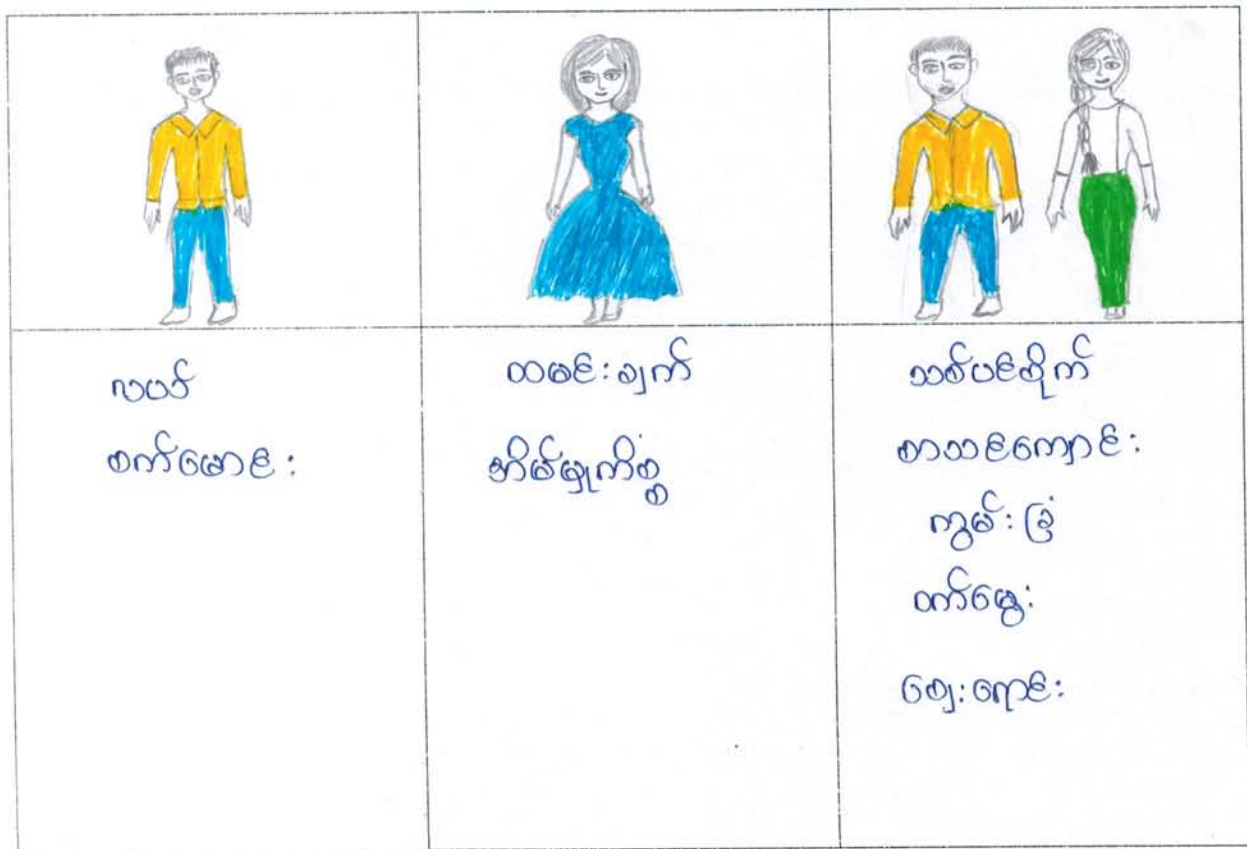 လယ်
စက်မောင်း
ထမင်းချက်
အိမ်မှုကိစ္စ
သစ်ပင်စိုက်
စာသင်ကျောင်း
ကွမ်းခြံ
ဝက်မွေး
စျေးရောင်း